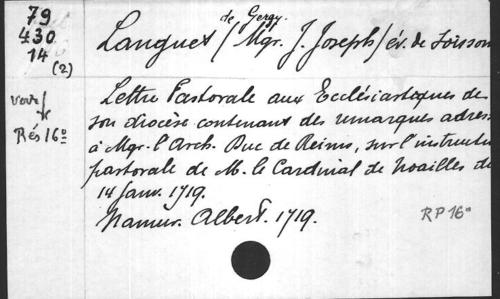 79
430
14
(2)
Languet / de Gergy. Mgr. J. Joseph / év. de Soissons
Lettre Pastorale aux Ecclésiastiques de
son diocèse contenant des remarques adres
à Mgr. l'Arch. Duc de Reims, sur l'instructi
pastorale de M. le Cardinal de Noailles du
14 Janv. 1719.
Namur. Albert. 1719.
Rés 16°
RP 16°